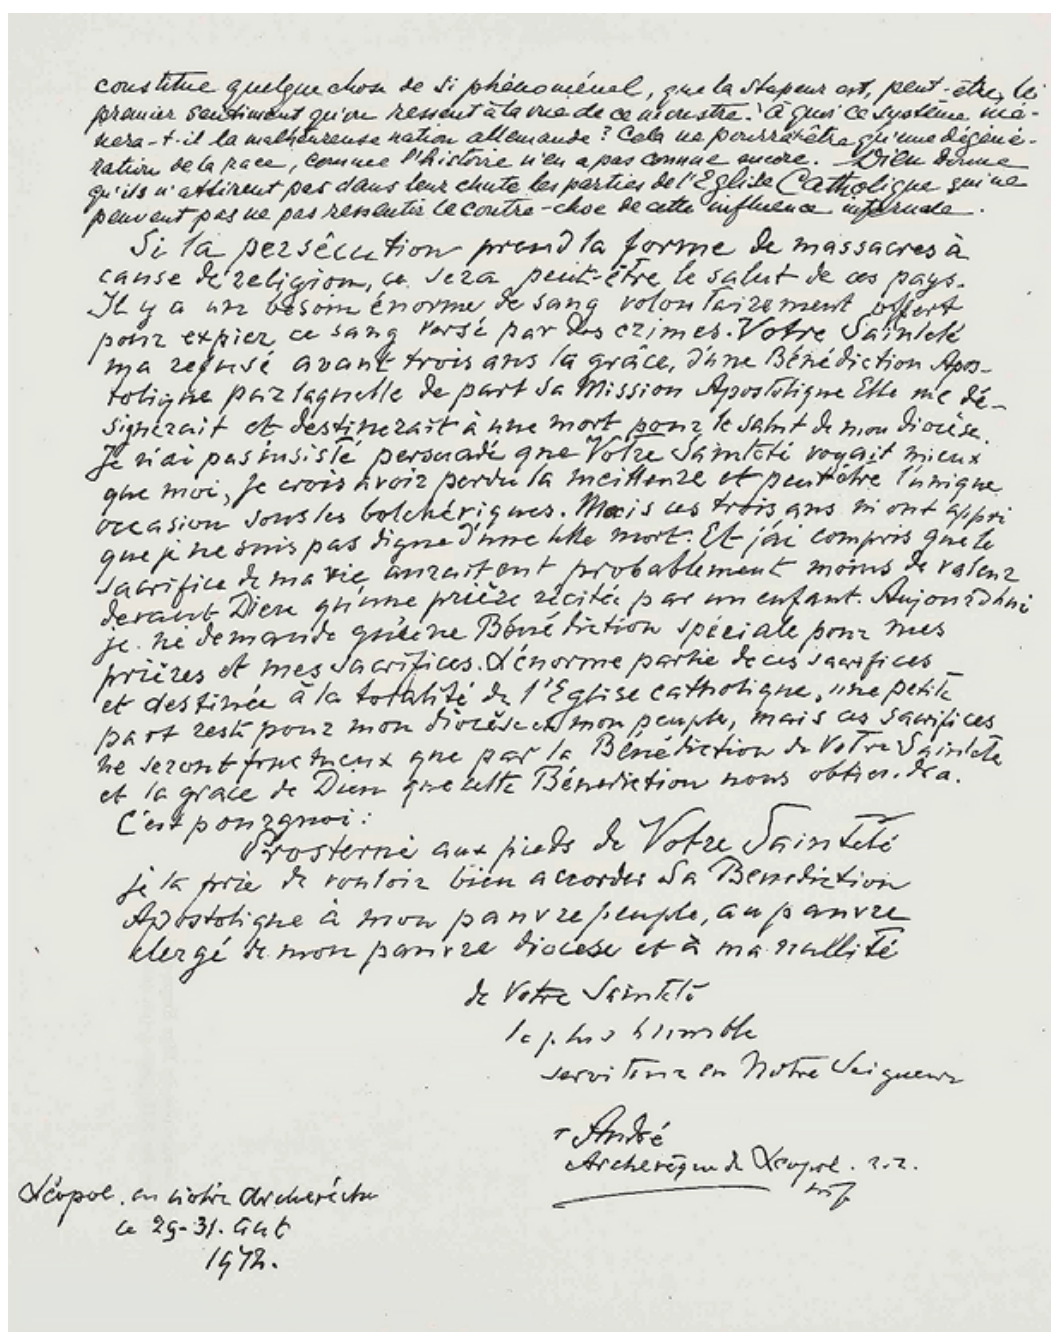 constitue quelque chose de si phénoménal, que la stupeur est, peut-être, le
premier sentiment qu'on ressent à la vue de ce monstre. À quoi ce système mè-
nera-t-il la malheureuse nation allemande? Cela ne pourra être qu'une dégéné-
ration de la race, comme l'histoire n'en a pas connue encore. Dieu donne
qu'ils n'attirent pas dans leur chute les parties de l'Eglise Catholique qui ne
peuvent pas ne pas ressentir le contre-choc de cette influence infernale.
Si la persécution prend la forme de massacres à
cause de religion, ce sera peut-être le salut de ces pays.
Il y a un besoin énorme de sang volontairement offert
pour expier ce sang versé par des crimes. Votre Sainteté
m'a refusé avant trois ans la grâce, d'une Bénédiction Apos-
tolique par laquelle de part Sa Mission Apostolique Elle me dé-
signerait et destinerait à une mort pour le salut de mon diocèse.
Je n'ai pas insisté persuadé que Votre Sainteté voyait mieux
que moi, je crois avoir perdu la meilleure et peut être l'unique
occasion sous les bolchéviques. Mais ces trois ans m'ont appri
que je ne suis pas digne d'une telle mort. Et j'ai compris que le
sacrifice de ma vie aurait probablement moins de valeur
devant Dieu qu'une prière récitée par un enfant. Aujourd'hui
je ne demande qu'une Bénédiction spéciale pour mes
prières et mes sacrifices. L'énorme partie de ces sacrifices
et destinée à la totalité de l'Eglise catholique, une petite
part reste pour mon diocèse et mon peuple, mais ces sacrifices
ne seront fructueux que par la Bénédiction de Votre Sainteté
et la grace de Dieu que cette Bénédiction nous obtiendra.
C'est pourquoi:
Prosterné aux pieds de Votre Sainteté
je la prie de vouloir bien accorder Sa Benediction
Apostolique à mon pauvre peuple, au pauvre
clergé de mon pauvre diocèse et à ma nullité
de Votre Sainteté
le plus humble
serviteur en Notre Seigneur
+ André
Archevêque de Léopol. r.r.
mp
Léopol. en notre Archevêché
ce 29-31. Aut
1942.